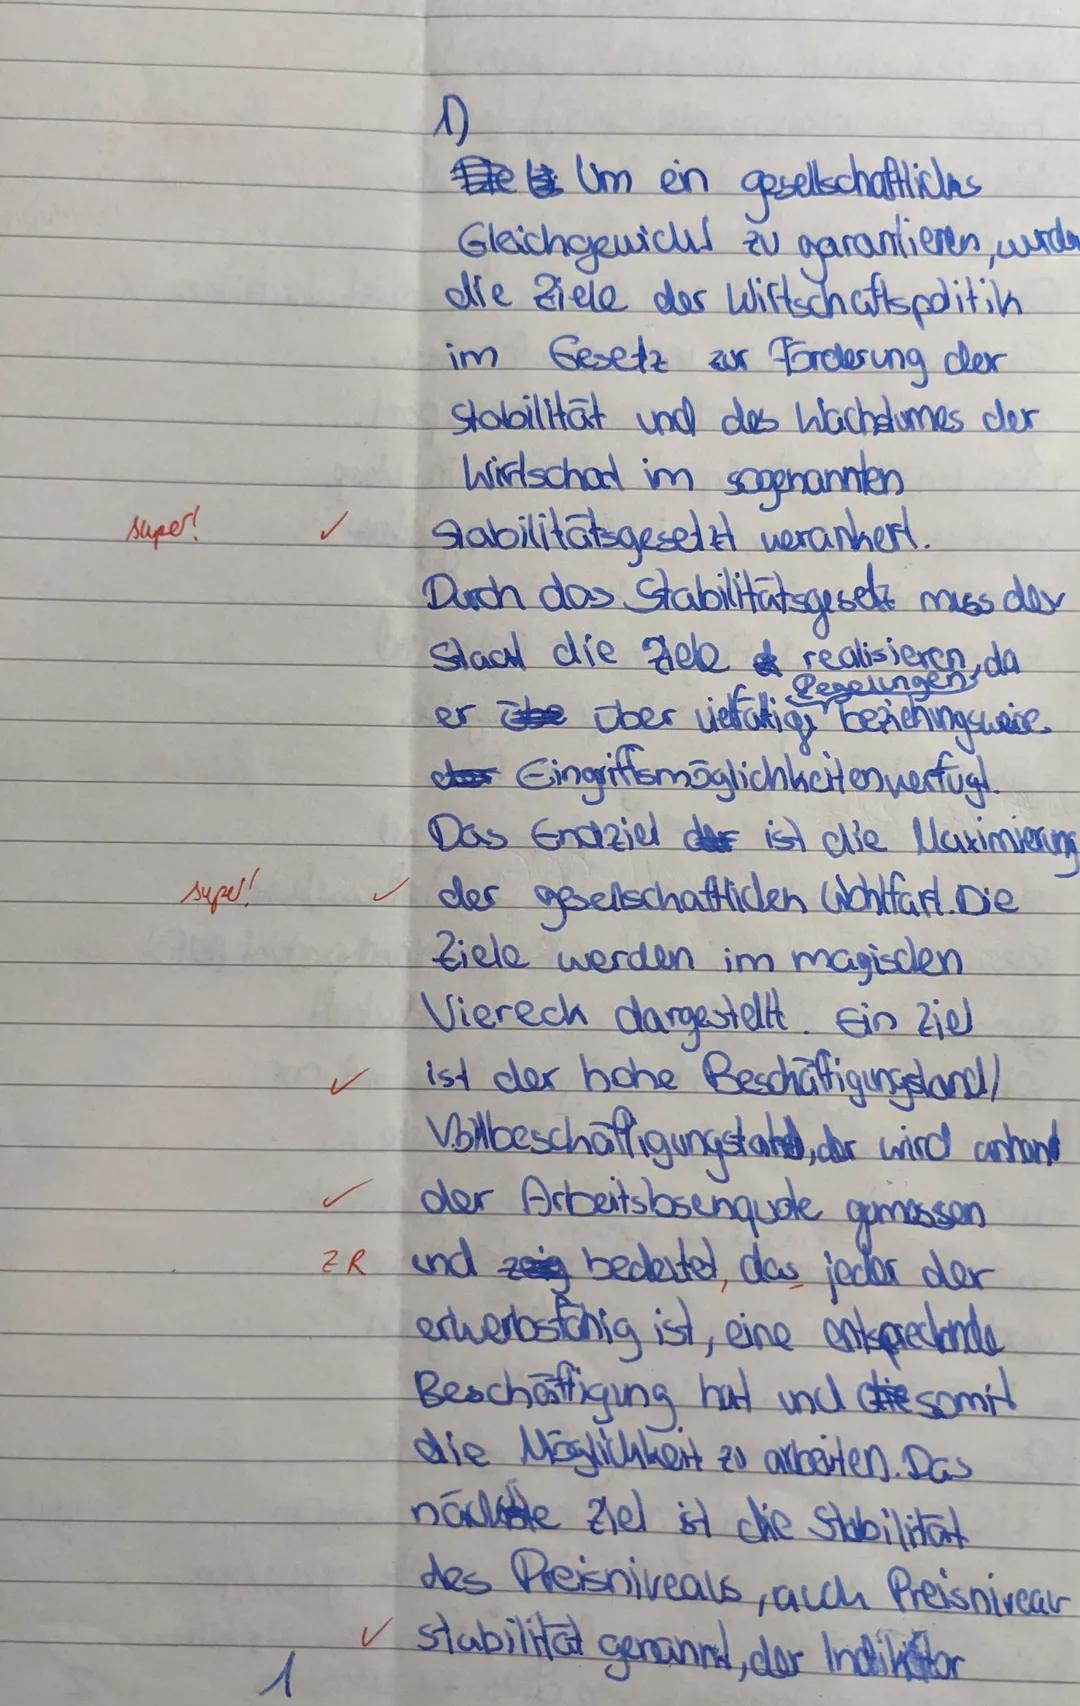 1)
Um ein gesellschaftliches
Gleichgewicht zu garantieren, wurden
die Ziele der Wirtschaftspolitik
im Gesetz zur Förderung der
Stabilität und des Wachstumes der
Wirtschaft im sogenannten
super! ✓ Stabilitätsgesetzt verankert.
Durch das Stabilitätsgesetz muss der
Staat die Ziele realisieren, da
Regelungen
er über vielfätige beziehungsweise
Eingriffsmöglichkeiten verfügt.
Das Endziel ist die Maximierung
super! ✓ der gesellschaftlichen Wohlfart. Die
Ziele werden im magischen
Viereck dargestellt. Ein Ziel
✓ ist der hohe Beschäftigungstand/
Vollbeschäftigungstand, der wird anhand
✓ der Arbeitslosenquote gemessen
ZR und bedeutet, das jeder der
erwerbsfähig ist, eine entsprechende
Beschäftigung hat und somit
die Möglichkeit zu arbeiten. Das
nächste Ziel ist die Stabilität
des Preisniveaus, auch Preisniveau
✓ stabilität genannt, der Indikator
1